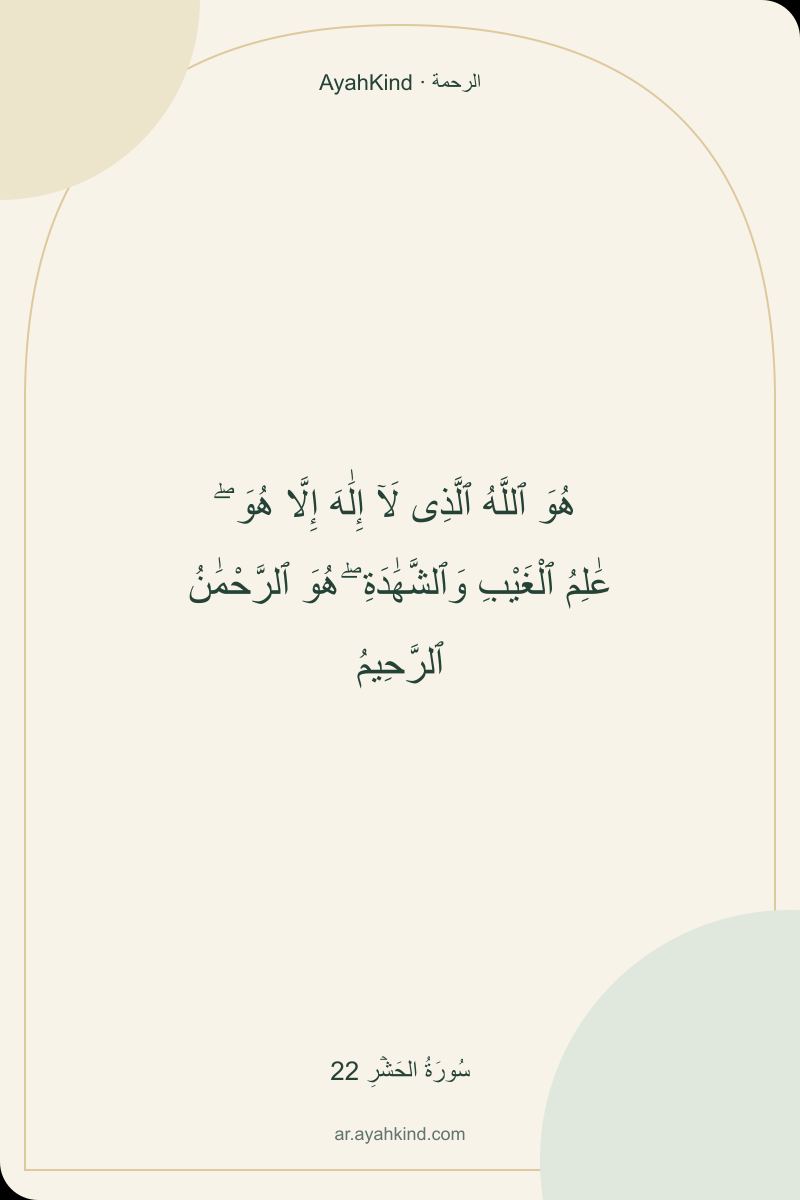 AyahKind · الرحمة
هُوَ ٱللَّهُ ٱلَّذِى لَآ إِلَٰهَ إِلَّا هُوَ ۖ
عَٰلِمُ ٱلْغَيْبِ وَٱلشَّهَٰدَةِ ۖ هُوَ ٱلرَّحْمَٰنُ
ٱلرَّحِيمُ
سُورَةُ الحَشۡرِ 22
ar.ayahkind.com